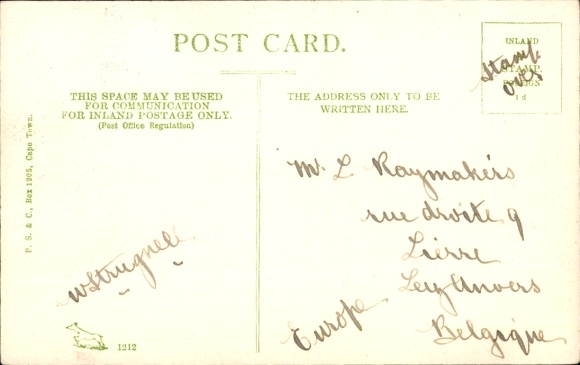 POST CARD.
THIS SPACE MAY BE USED
FOR COMMUNICATION
FOR INLAND POSTAGE ONLY.
(Post Office Regulation)
THE ADDRESS ONLY TO BE
WRITTEN HERE.
INLAND
STAMP.
1d
Stamp
over
P. S. & C., Box 1205, Cape Town.
Mr. L Raymakers
rue droite 9
Lierre
Lez Anvers
Belgique
Europe
W Strugnell
1212